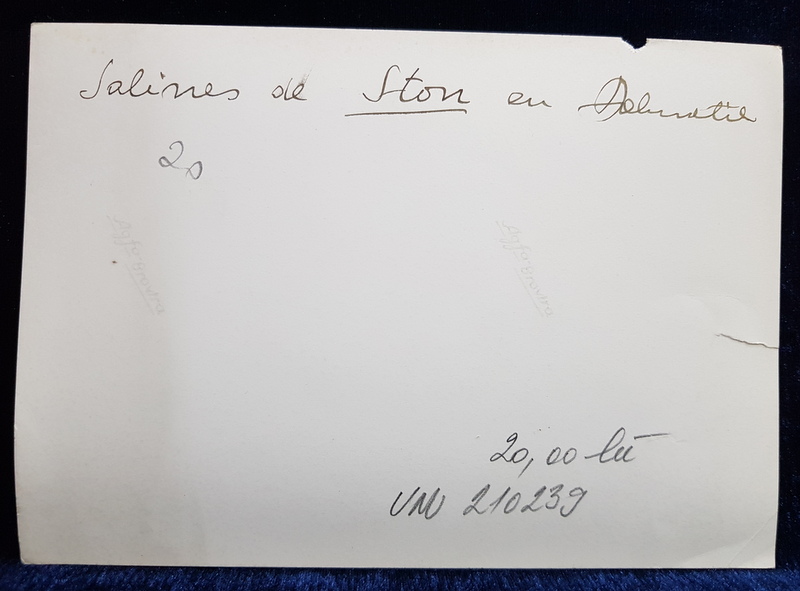 Salines de Ston en Dalmatie
20
Agfa-Brovira
Agfa-Brovira
20,00 lū
VND 210239